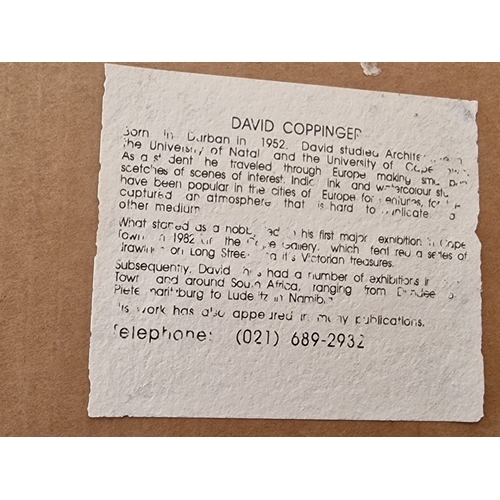 DAVID COPPINGER
Born in Durban in 1952, David studied
the University of Natal and the University of Cape
As a student he traveled through Europe making
scetches of scenes of interest. ink and watercolour
have been popular in the cities of Europe for
captured an atmosphere that is hard to
other medium
What started as a his first major exhibition in Cape
Town in 1982 the Gallery, which featured a series of
drawings on Long Street and it's Victorian treasures.
Subsequently, David has had a number of exhibitions in
Town and around South Africa, ranging from Dundee
Pietermaritzburg to Luderitz in Namibia
His work has also appeared in many publications.
Telephone: (021) 689-2932